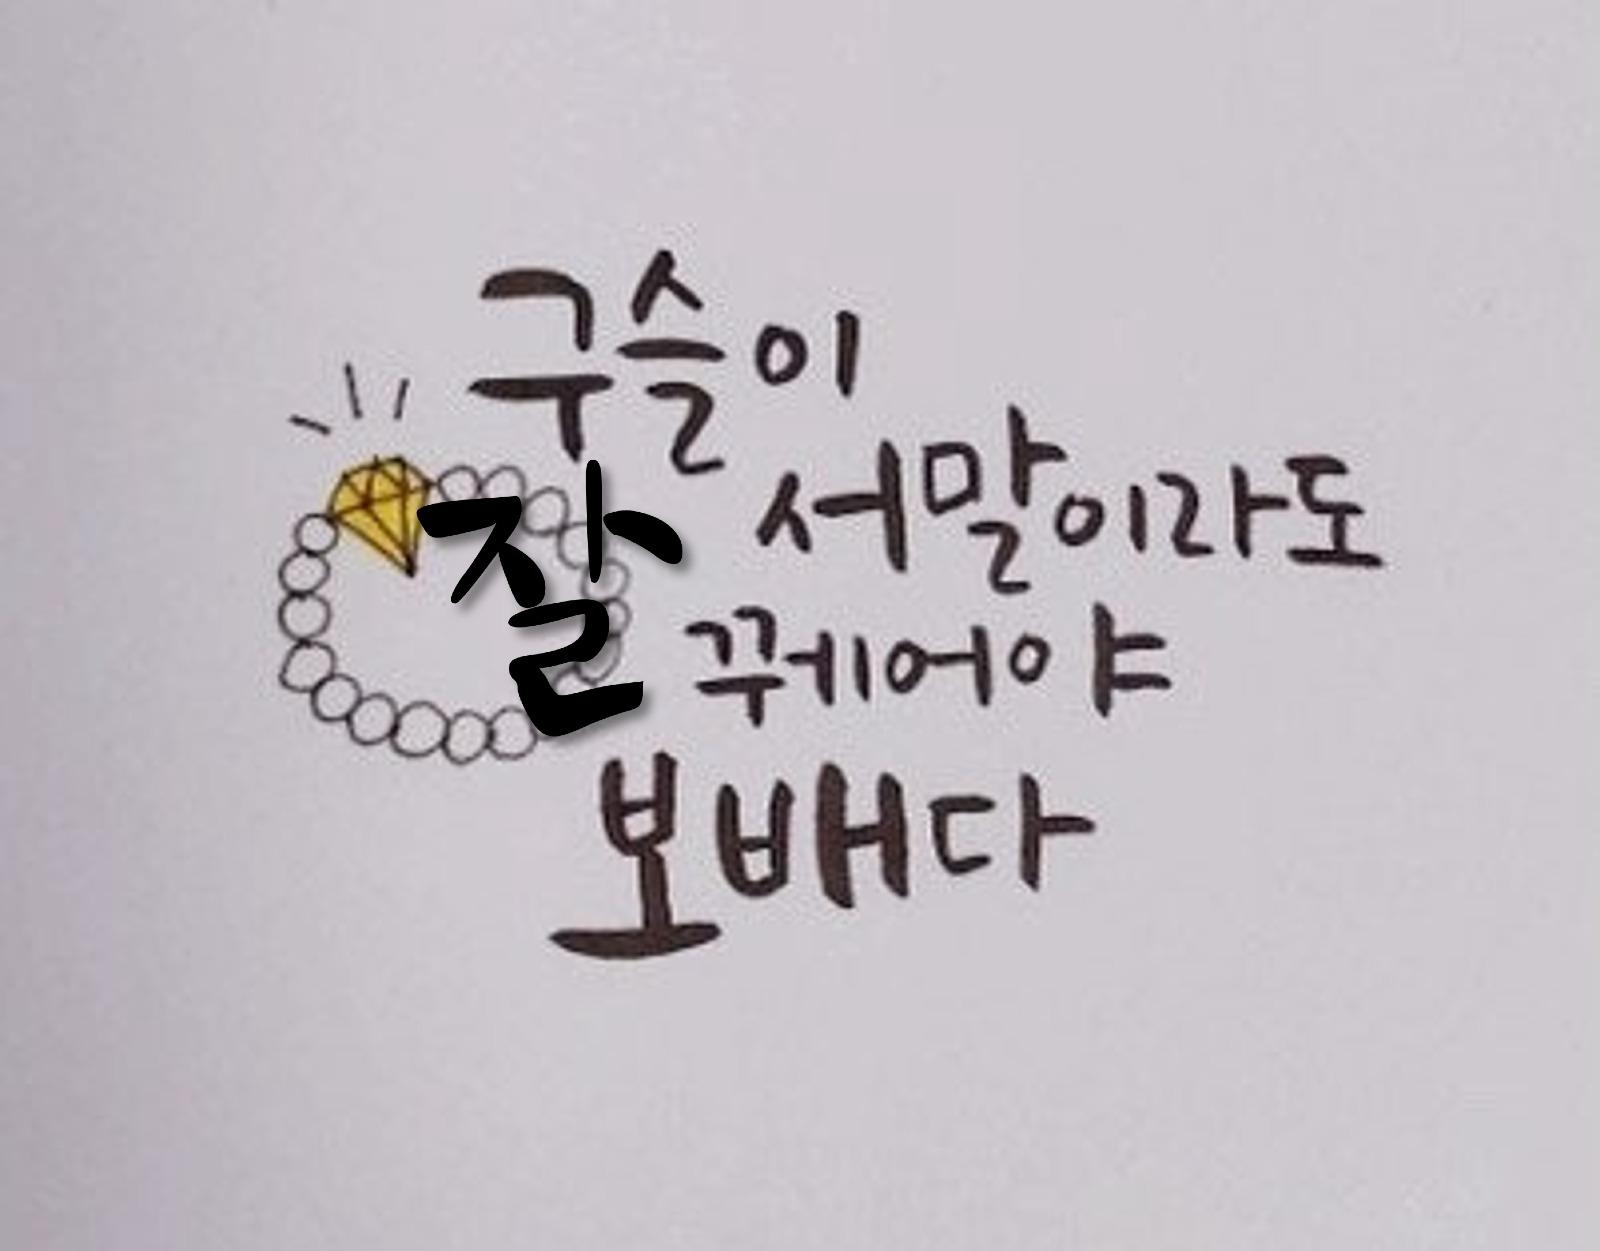 구슬이
서말이라도
잘 꿰어야
보배다